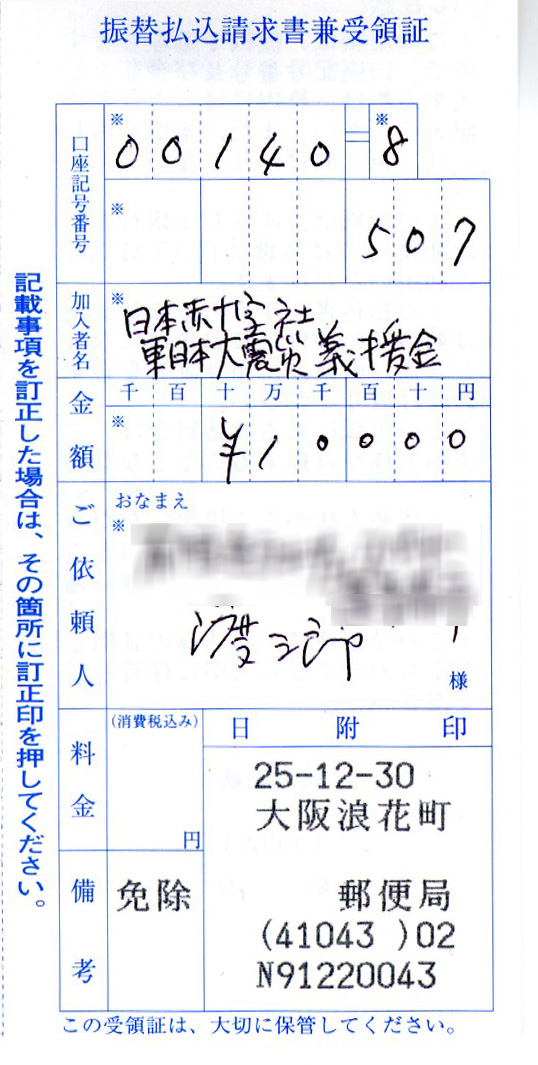 振替払込請求書兼受領証
口座記号番号
※ 00140 = ※ 8
※ 507
加入者名
※ 日本赤十字社
東日本大震災義援金
金額
千 百 十 万 千 百 十 円
※ ¥10000
ご依頼人
おなまえ
※
様
料金
(消費税込み)
円
日附印
25-12-30
大阪浪花町
備考
免除
郵便局
(41043 )02
N91220043
この受領証は、大切に保管してください。
記載事項を訂正した場合は、その箇所に訂正印を押してください。